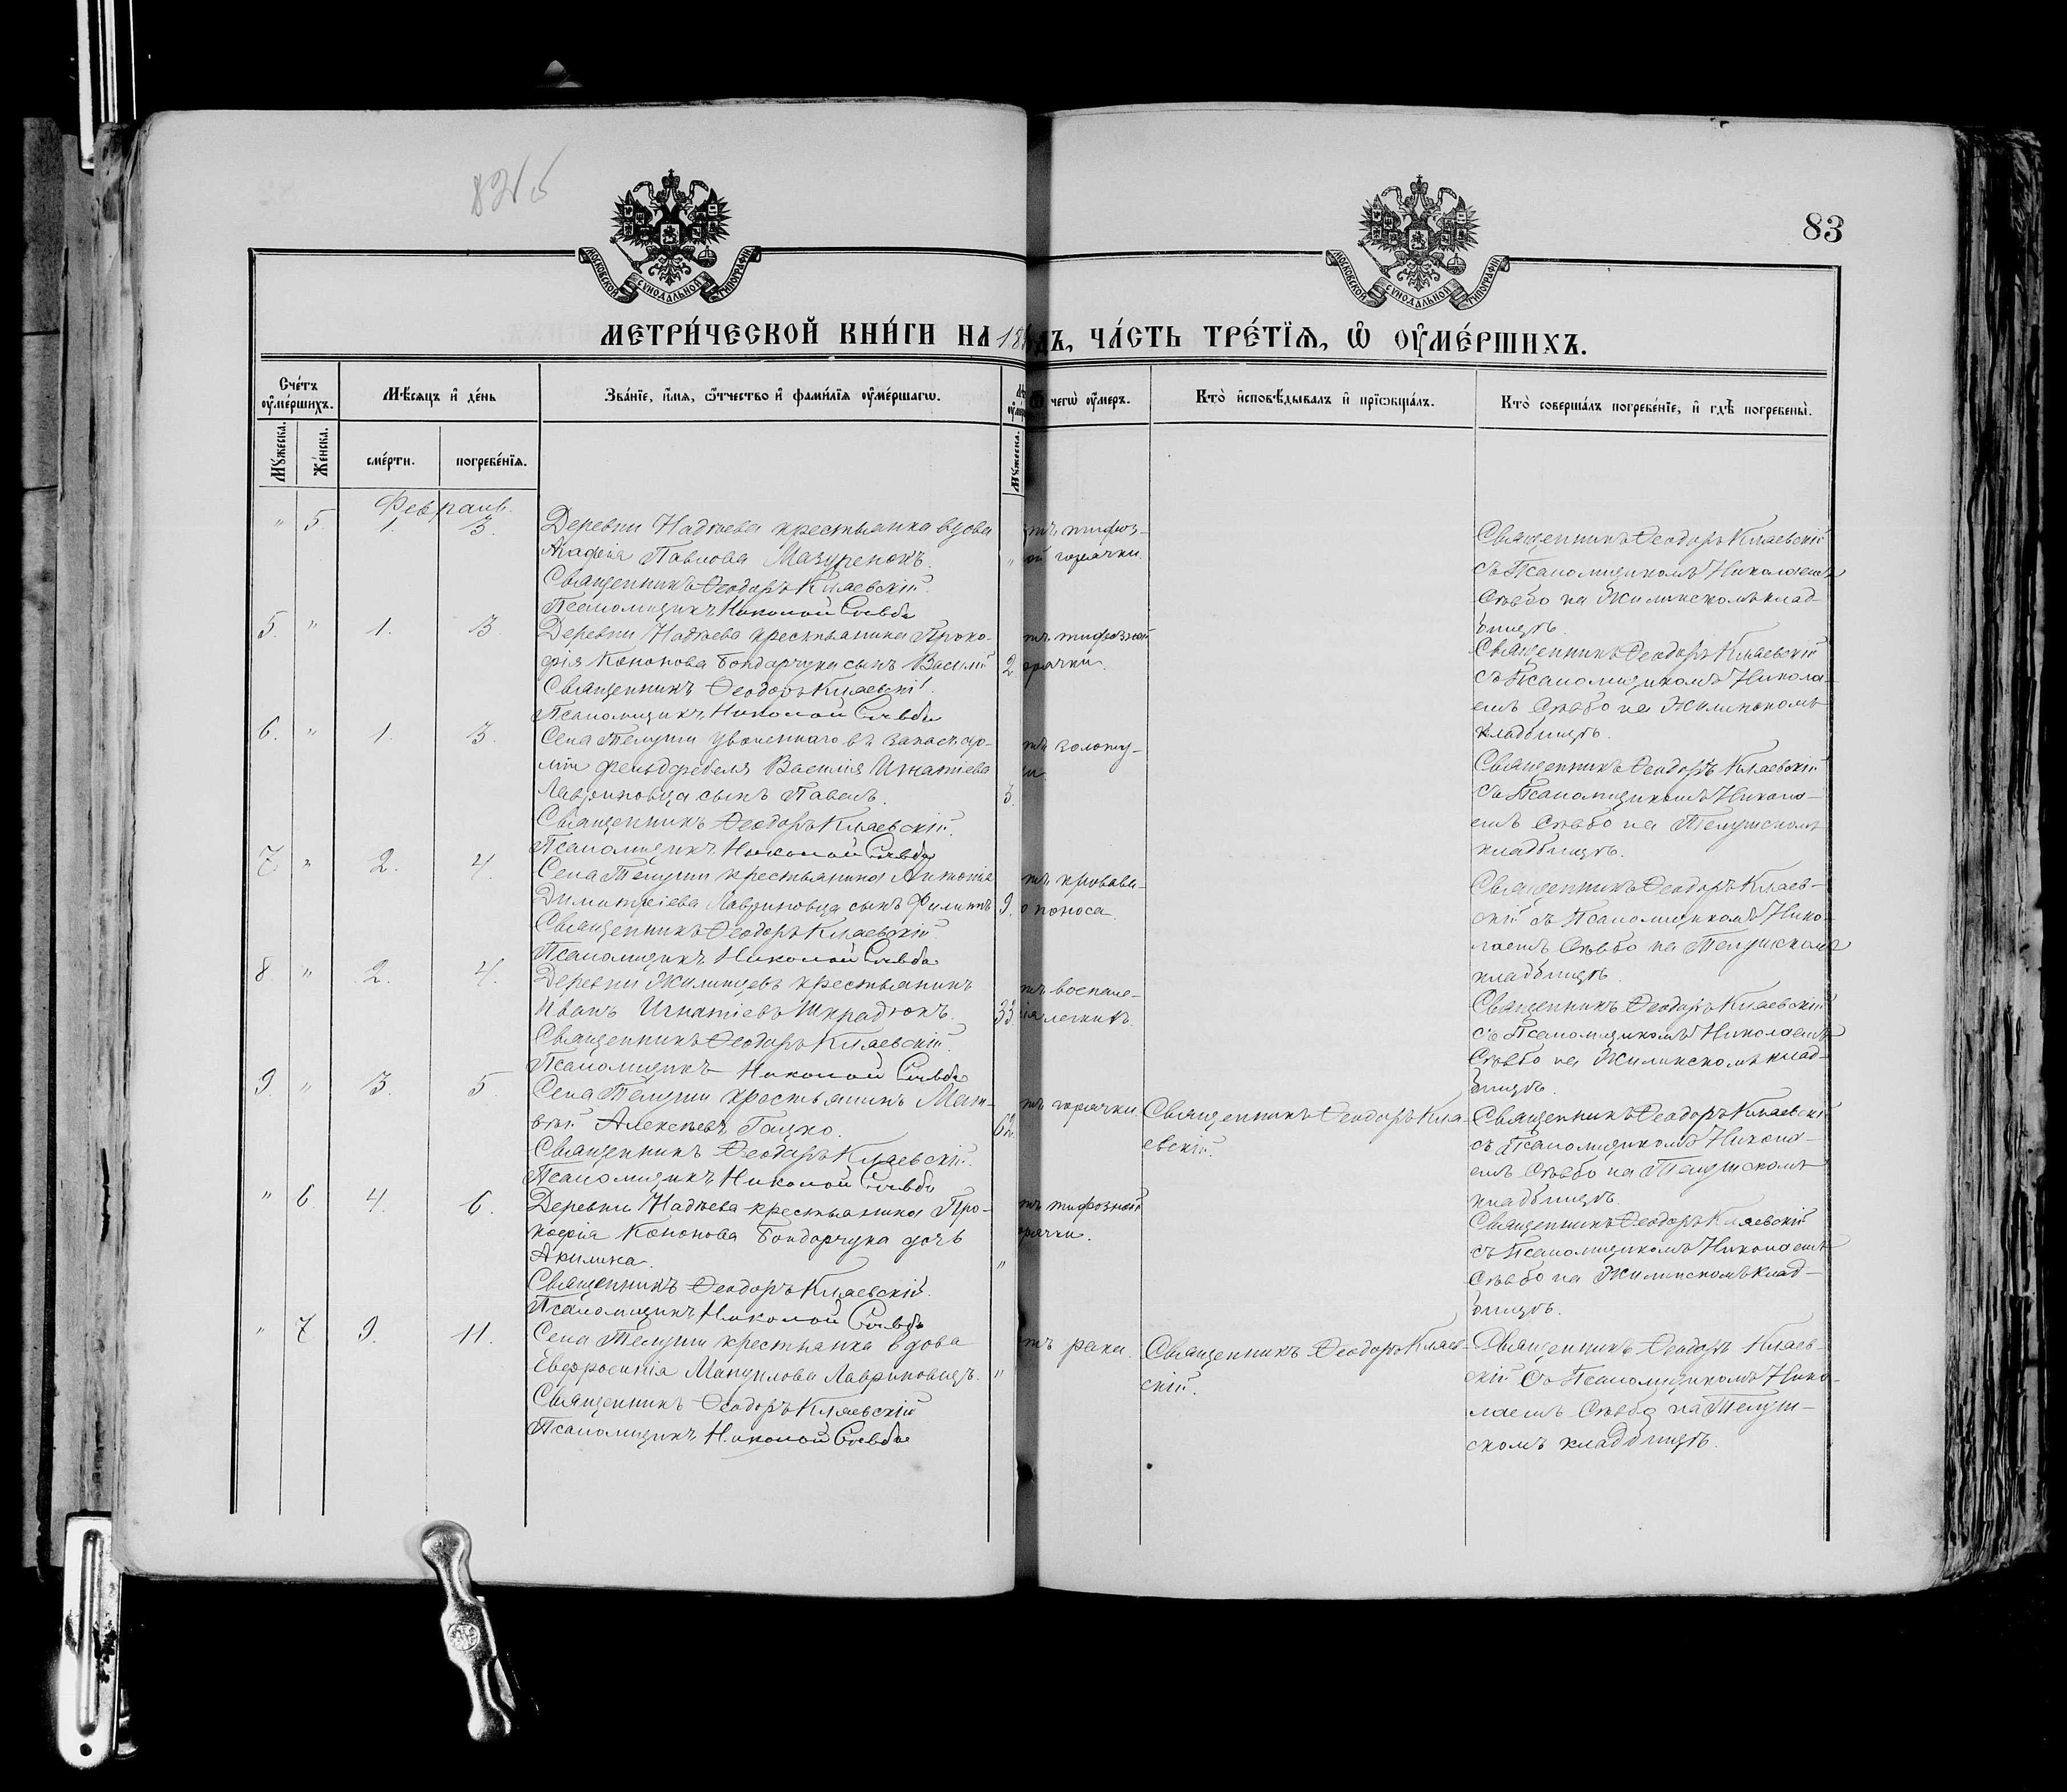 82об
МОСКОВСКОЙ СУНОДАЛЬНОЙ ТИПОГРАФІИ
МОСКОВСКОЙ СУНОДАЛЬНОЙ ТИПОГРАФІИ
83
МЕТРИ́ЧЕСКОЙ КНИ́ГИ НА 18 дъ, ЧА́СТЬ ТРЕ́ТЇѦ, Ѡ҆ ОУ҆МЕ́РШИХЪ.
Сче́тъ оу҆ме́ршихъ.
Мѣ́сяцъ и҆ де́нь
Зва́нїе, и҆́мѧ, ѻ҆́тчество и҆ фами́лїѧ оу҆ме́ршагѡ.
Ѿ чегѡ̀ оу҆́меръ.
Кто̀ и҆сповѣ́дывалъ и҆ прїѡбща́лъ.
Кто̀ соверша́лъ погребе́нїе, и҆ гдѣ̀ погребены̀.
Мꙋ́жеска.
Же́нска.
сме́рти.
погребе́нїѧ.
Мꙋ́жеска.
Февраль.
" 5. 1. 3. Деревни Надчева крестьянка вдова
Агафія Павлова Мазуренокъ.
Священникъ Ѳеодоръ Кляевскій.
Псаломщикъ Николай Сльбо
" тъ тифоз-
ой горячки.
Священникъ Ѳеодоръ Кляевскій
съ Псаломщикомъ Николаемъ
на Жилинскомъ клад-
бищѣ.
5. " 1. 3. Деревни Надчева крестьянина Проко-
фія Кононова Бондарчука сынъ Василій
Священникъ Ѳеодоръ Кляевскій.
Псаломщикъ Николай
2 тъ тифозной
орячки.
Священникъ Ѳеодоръ Кляевскій
съ Псаломщикомъ Никола-
емъ на Жилинскомъ
кладбищѣ.
6. " 1. 3. Села Телуши уволеннаго въ запасъ ар-
міи фельдфебеля Василія Игнатіева
Лавриновца сынъ Павелъ.
Священникъ Ѳеодоръ Кляевскій.
Псаломщикъ Николай
тъ золоту-
хи
Священникъ Ѳеодоръ Кляевскій
съ Псаломщикомъ Никола-
емъ на Телушскомъ
кладбищѣ.
7 " 2. 4. Села Телуши крестьянина Антонія
Димитріева Лавриновца сынъ Филиппъ
Священникъ Ѳеодоръ Кляевскій.
Псаломщикъ Николай
9. тъ кровава-
о поноса.
Священникъ Ѳеодоръ Кляев-
скій съ Псаломщикомъ Нико-
лаемъ на Телушскомъ
кладбищѣ.
8 " 2. 4. Деревни Жилинцевъ крестьянинъ
Иванъ Игнатіевъ Шкрадюкъ.
Священникъ Ѳеодоръ Кляевскій.
Псаломщикъ Николай
33. тъ воспале-
ія легкихъ.
Священникъ Ѳеодоръ Кляевскій
съ Псаломщикомъ Николаемъ
на Жилинскомъ клад-
бищѣ.
9. " 3. 5. Села Телуши крестьянинъ Мат-
вѣй Алексѣевъ Гацко.
Священникъ Ѳеодоръ Кляевскій.
Псаломщикъ Николай
62. тъ горячки.
Священникъ Ѳеодоръ Кля-
евскій.
Священникъ Ѳеодоръ Кляевскій
съ Псаломщикомъ Никола-
емъ на Телушскомъ
кладбищѣ.
" 6. 4. 6. Деревни Надчева крестьянина Про-
кофія Кононова Бондарчука дочь
Акилина.
Священникъ Ѳеодоръ Кляевскій.
Псаломщикъ Николай
" тъ тифозной
орячки.
Священникъ Ѳеодоръ Кляевскій
съ Псаломщикомъ Николаемъ
на Жилинскомъ клад-
бищѣ.
" 7 9. 11. Села Телуши крестьянка вдова
Евфросинія Мануилова Лавриновецъ.
Священникъ Ѳеодоръ Кляевскій
Псаломщикъ Николай
" тъ рака.
Священникъ Ѳеодоръ Кляев-
скій.
Священникъ Ѳеодоръ Кляев-
скій съ Псаломщикомъ Нико-
лаемъ на Телуш-
скомъ кладбищѣ.